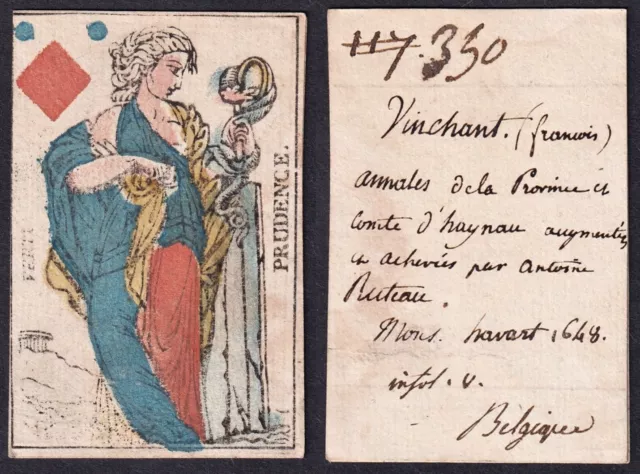 VERTU
PRUDENCE.
117.350
Vinchant. (francois)
annales de la Province et
comte d'haynau augmentées
et achevées par antoine
Ruteau.
Mons. havart 1648.
infol. v.
Belgique